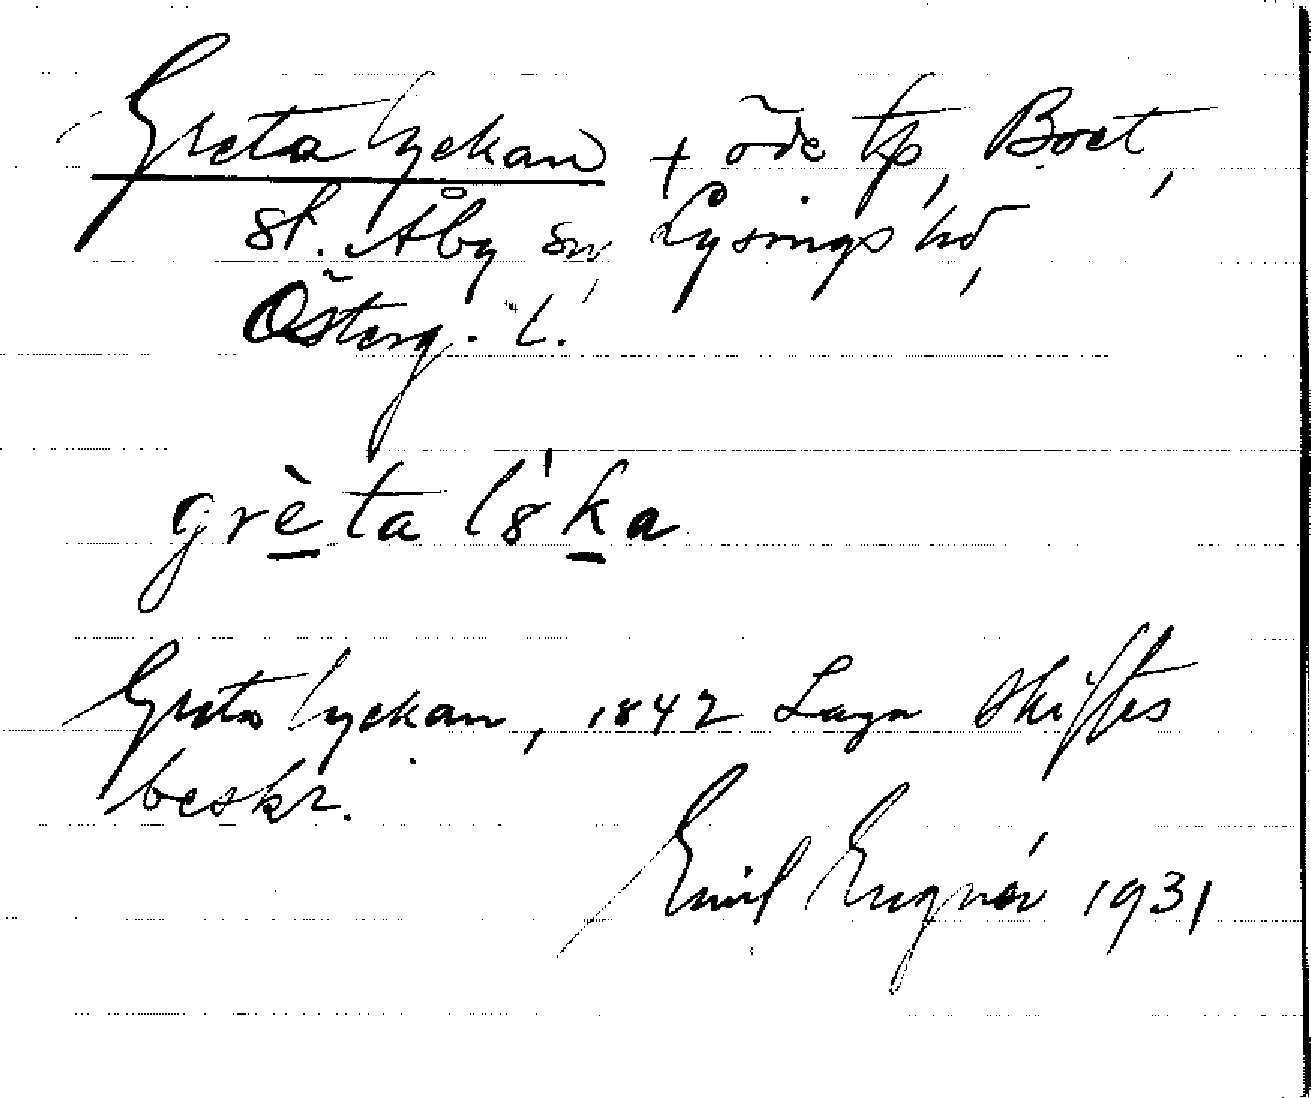 Greta lyckan + öde tp, Boet,
St. Åby sn, Lysings hd,
Österg. l.
grèta lấka
Greta lyckan, 1842 Laga Skiftes
beskr.
Emil 1931